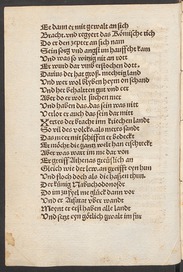 Er dann er mit gewalt an sich
Bracht vnd regiert das Römisch rich
Do er den zepter an sich nam
Sein sorg vnd angst im hauffecht kam
Vnd was so witzig nit an vort
Er ward dar vmb erstochen dort
Darius der hat groß mechtig land
Vnd wer wol bliben heym on schand
Vnd her behalten gut vnd eer
Aber do er wolt suchen mer
Vnd haben das das sein was nitt
Verlor er auch das sein dar mitt
Xerxes der bracht inn kriechen landt
So vil des volcks als meres sandt
Das mer mit schiffen er bedeckt
Er möcht die gantz welt han erschreckt
Aber was wart im me dar von
Er greiff Athenas greüslich an
Gleich wie der lew an greifft eyn hun
Vnd floch doch als die hasen thun
Der künig Nabuchodonosor
Do im zufyel me glück dann vor
Vnd er Arfaxat über wandt
Meynt er erst haben alle landt
Vnd setzt eyn götlich gwalt im für